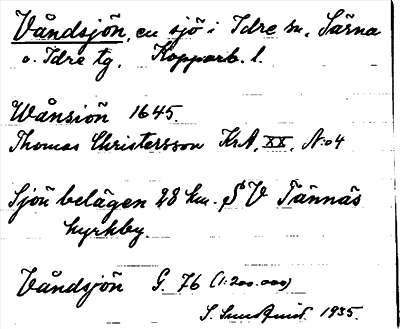 Våndsjön, en sjö i Idre sn. Särna
o. Idre tg. Kopparb. l.
Wånsiön 1645.
Thomas Christersson KrA, XX, N:o 4
Sjön belägen 28 km. SV Tännäs
kyrkby.
Våndsjön G. 76 (1:200.000)
S. Sundquist 1935.